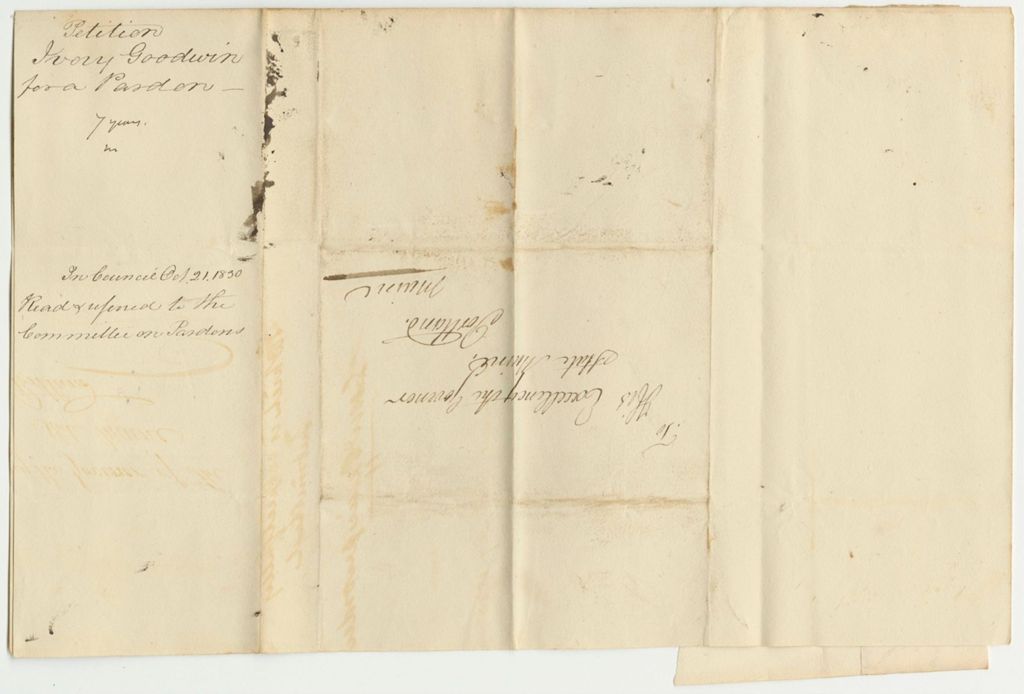 Petition
Ivory Goodwin
for a Pardon —
7 years.
In Council Oct. 21. 1830
Read & referred to the
Committee on Pardons
To
His Excellency the Governor
State Maine,
Portland.
Maine